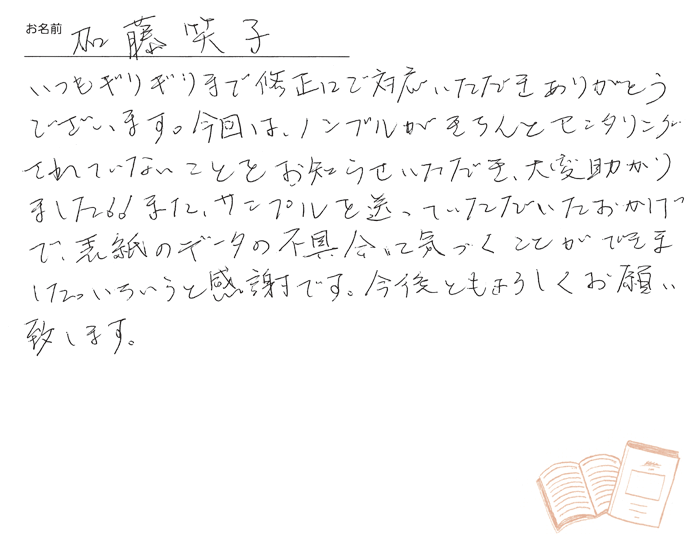 お名前 加藤笑子
いつもギリギリまで修正にご対応いただきありがとう
ございます。今回は、ノンブルがきちんとセンタリング
されていないことをお知らせいただき、大変助かり
ました。また、サンプルを送っていただいたおかげ
で、表紙のデータの不具合に気づくことができま
した。いろいろと感謝です。今後ともよろしくお願い
致します。